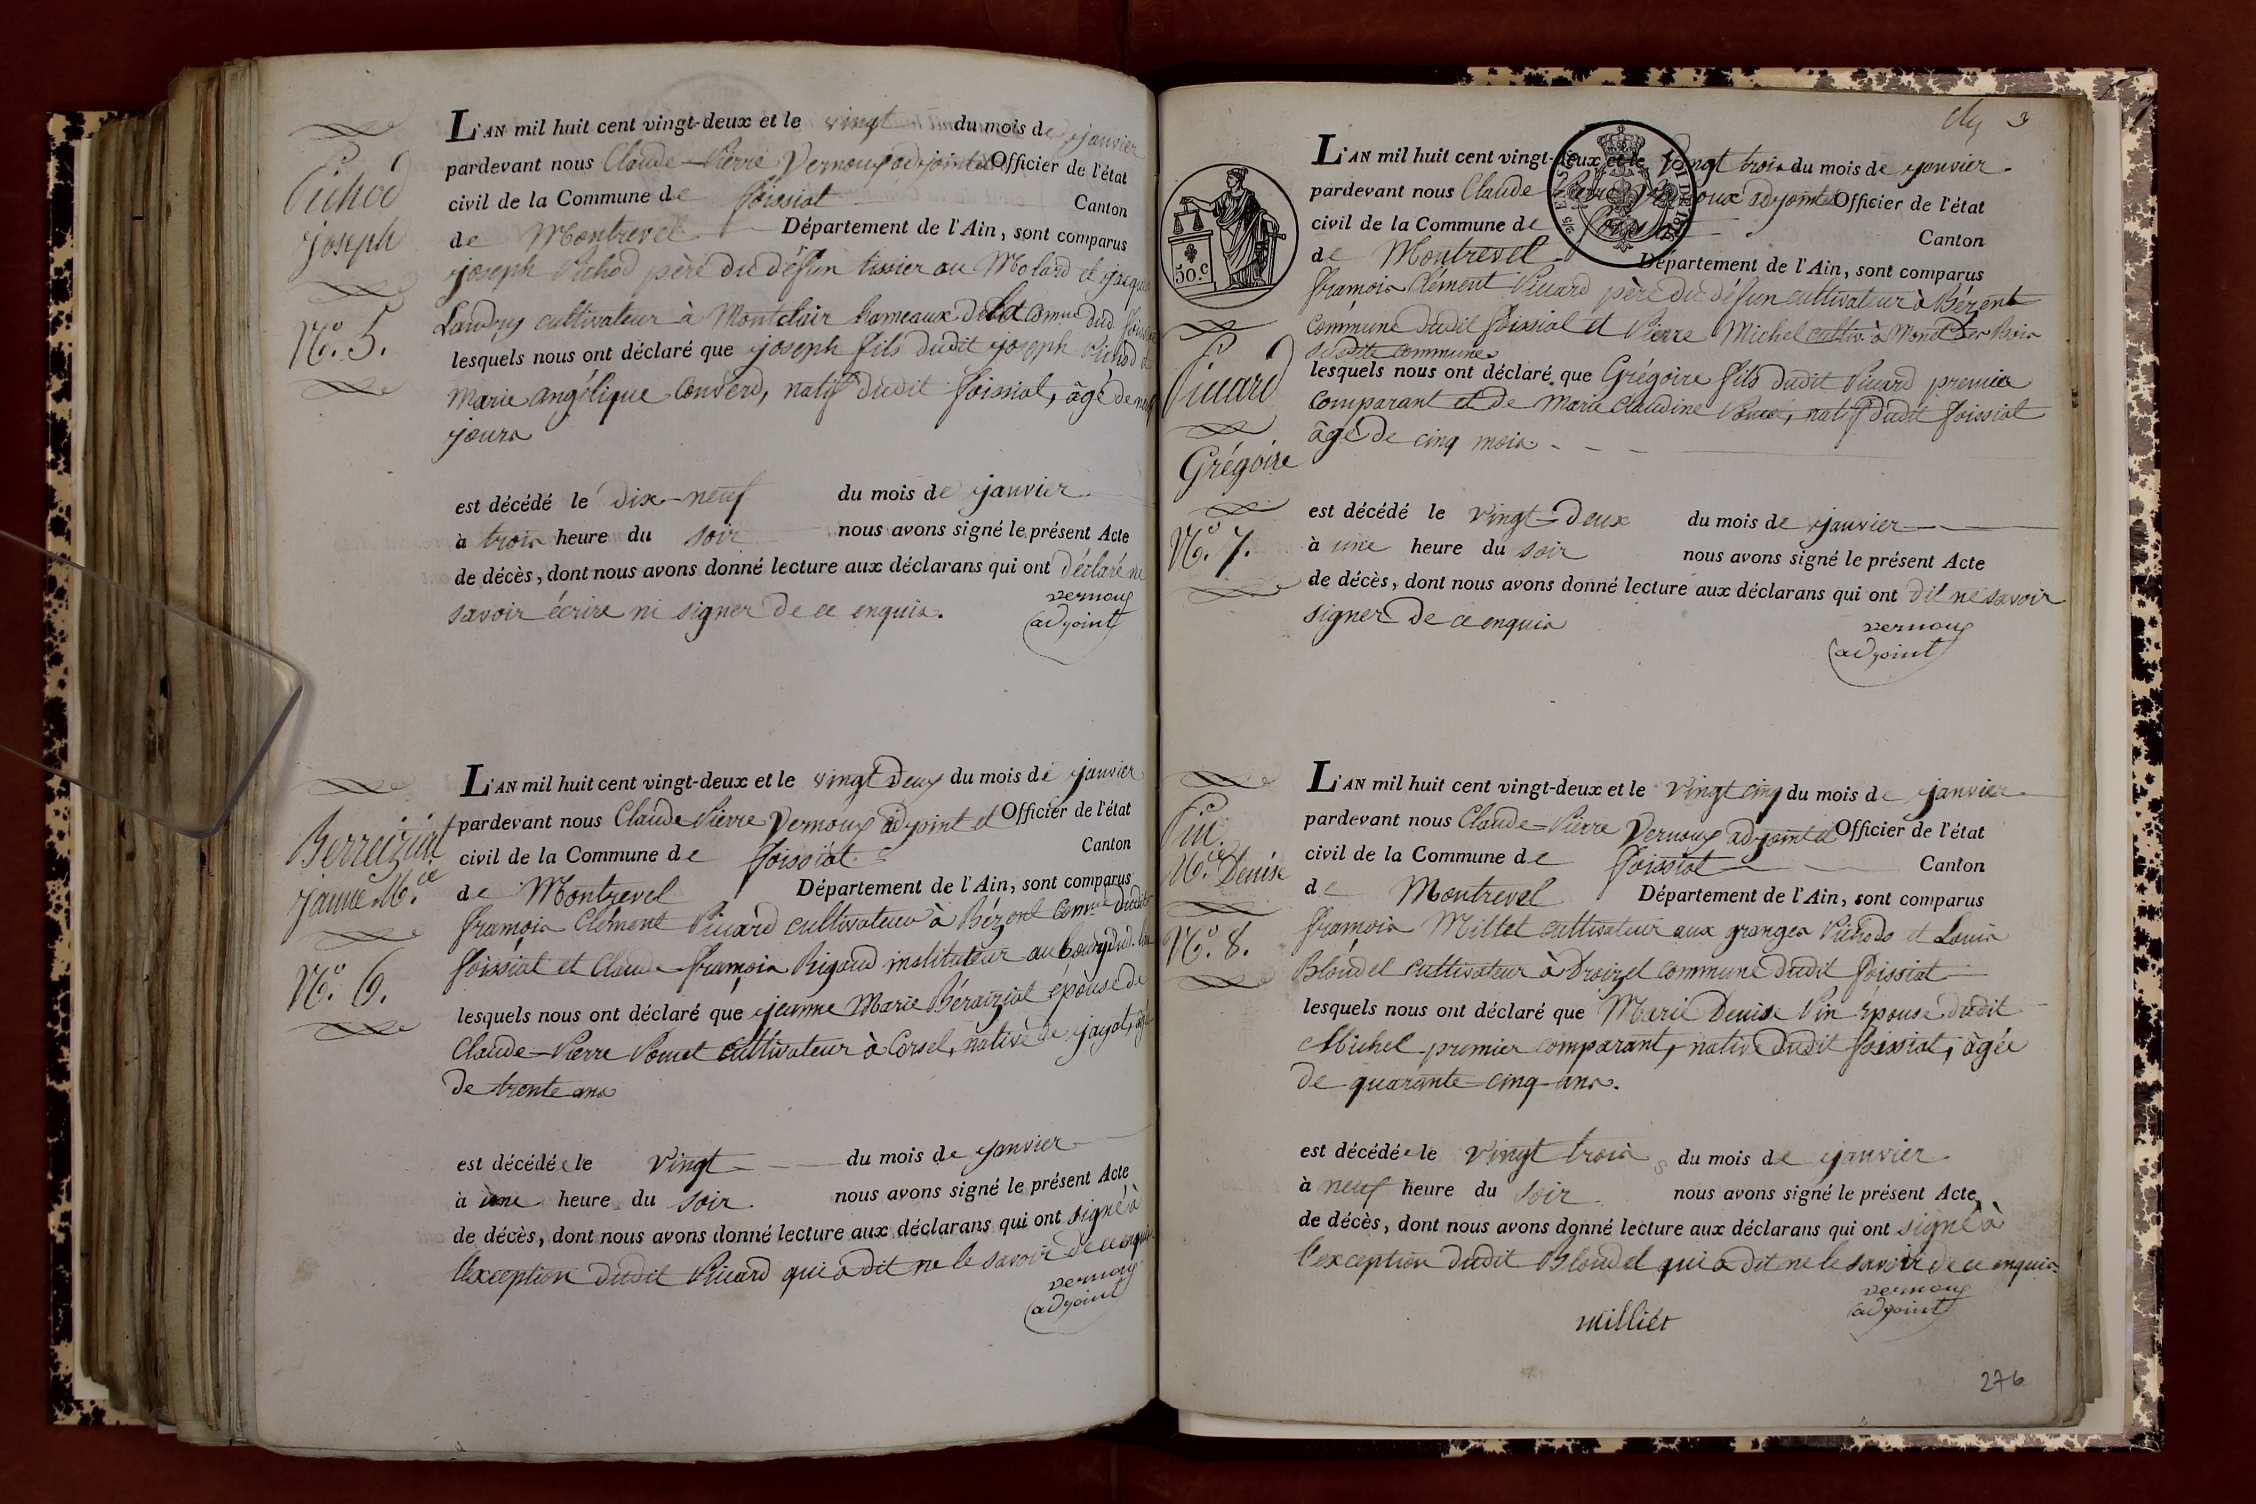 Pichod
joseph
N.° 5.
L'AN mil huit cent vingt-deux et le vingt du mois de janvier
pardevant nous Claude-Pierre Vernoux adjoint et Officier de l'état
civil de la Commune de foissiat Canton
de Montrevel Département de l'Ain, sont comparus
joseph Pichod père du défun tissier au Molard et jacques
Landry cultivateur à Montclair hameaux de la Com.ne dud. foissiat
lesquels nous ont déclaré que joseph fils dudit joseph Pichod et
Marie angélique Convers, natif dudit foissiat, âgé de neuf
jours
est décédé le dix-neuf du mois de janvier
à trois heure du soir nous avons signé le présent Acte
de décès, dont nous avons donné lecture aux déclarans qui ont déclaré ne
savoir écrire ni signer de ce enquis.
vernoux
adjoint
Berreiziat
janne M.ie
N.° 6.
L'AN mil huit cent vingt-deux et le vingt Deux du mois de janvier
pardevant nous Claude Pierre Vernoux adjoint et Officier de l'état
civil de la Commune de foissiat Canton
de Montrevel Département de l'Ain, sont comparus
framois Clément Picard cultivateur à Bézent Com.ne dudit
foissiat et Claude framois Rigaud instituteur au bourg dud. lieu
lesquels nous ont déclaré que jeanne Marie Béraiziat épouse de
Claude-Pierre Poncet cultivateur à Corsel, native de jayat, âgée
de trente ans
est décédée le vingt du mois de janvier
à une heure du soir nous avons signé le présent Acte
de décès, dont nous avons donné lecture aux déclarans qui ont signé à
l'exception dudit Picard qui a dit ne le savoir de ce enquis
vernoux
adjoint
3
50.c
Picard
Grégoire
N.° 7.
L'AN mil huit cent vingt-deux et le Vingt trois du mois de janvier
pardevant nous Claude Pierre Vernoux adjoint et Officier de l'état
civil de la Commune de foissiat Canton
de Montrevel Département de l'Ain, sont comparus
framois Clément Picard père du défun cultivateur à Bézent
Commune dudit foissiat et Pierre Michel cultiv. à Mont des Bois
susdite commune
lesquels nous ont déclaré que Grégoire fils dudit Picard premier
comparant et de Marie Claudine Poncet, natif dudit foissiat
âgé de cinq mois
est décédé le vingt-Deux du mois de janvier
à une heure du soir nous avons signé le présent Acte
de décès, dont nous avons donné lecture aux déclarans qui ont dit ne savoir
signer de ce enquis
vernoux
adjoint
Pin
M.ie Denise
N.° 8.
L'AN mil huit cent vingt-deux et le Vingt cinq du mois de janvier
pardevant nous Claude-Pierre Vernoux adjoint et Officier de l'état
civil de la Commune de foissiat Canton
de Montrevel Département de l'Ain, sont comparus
framois Millet cultivateur aux granges Pichods et Louis
Blondel cultivateur à Droizel commune dudit foissiat
lesquels nous ont déclaré que Marie Denise Pin Epouse dudit
Michel premier comparant, native dudit foissiat, âgée
de quarante-cinq-ans.
est décédée le vingt trois du mois de janvier
à neuf heure du soir nous avons signé le présent Acte
de décès, dont nous avons donné lecture aux déclarans qui ont signé à
l'exception dudit Blondel qui a dit ne le savoir de ce enquis
vernoux
adjoint
milliet
276